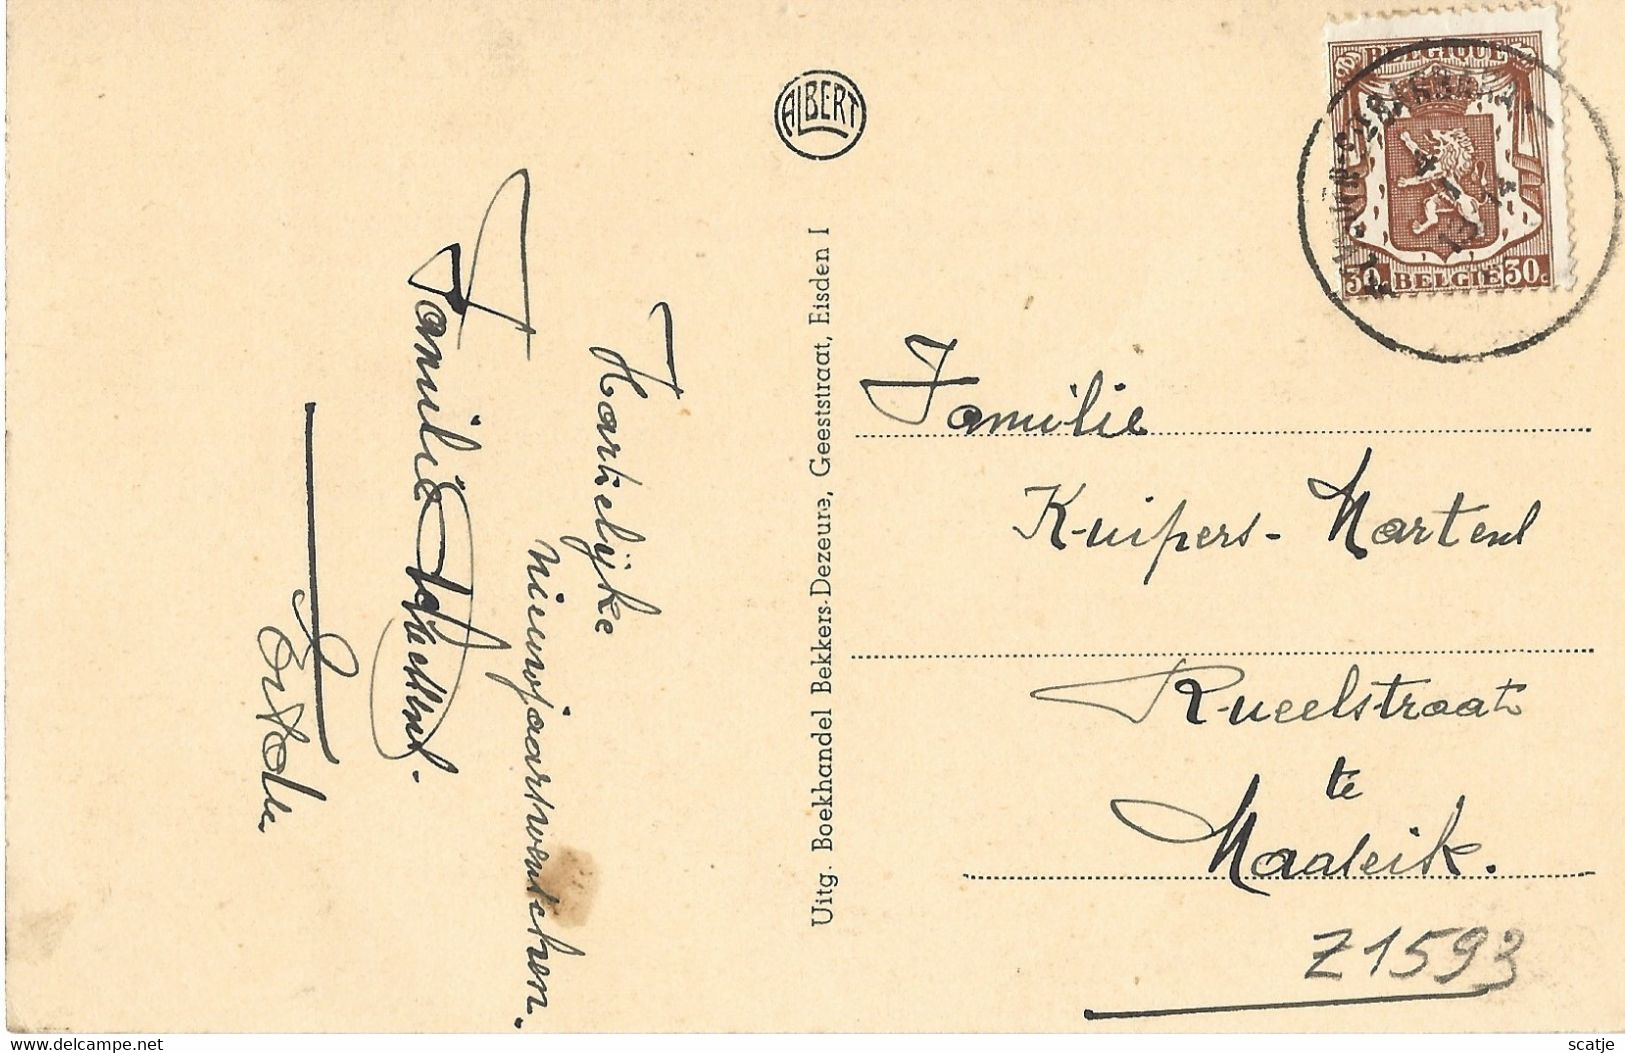 ALBERT
BELGIQUE
30c BELGIE 30c
Hartelijke
nieuwjaarswenschen.
Familie
Eisden
Uitg. Boekhandel Bekkers-Dezeure, Geeststraat, Eisden I
Familie
Kuipers-Martens
straat
te
Maaseik.
Z1593
www.delcampe.net
scatje